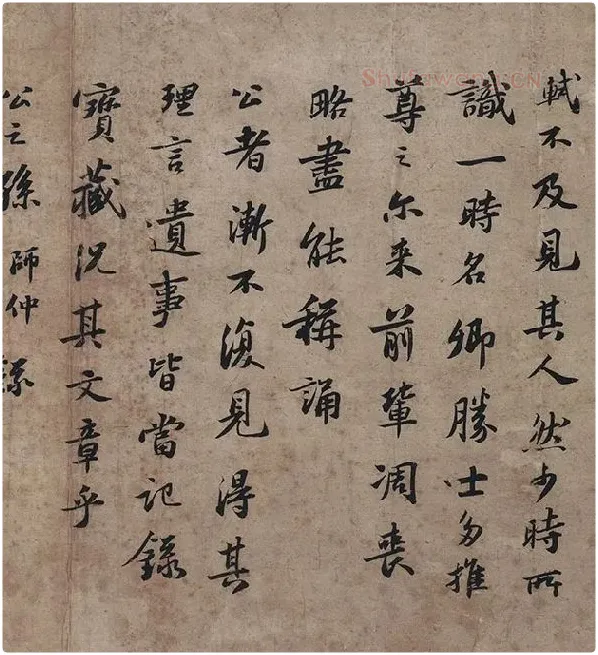 軾不及見其人然少時所
識一時名卿勝士多推
尊之尔来前輩凋喪
略盡能稱誦
公者漸不復見得其
理言遺事皆當記錄
寶藏况其文章乎
公之孫師仲錄